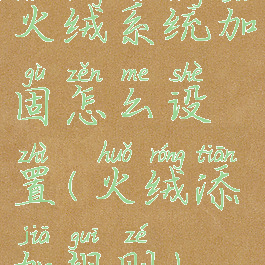 火绒系统加
gù zěn me shè
固怎么设
zhì huǒ róng tiān
置(火绒添
jiā guī zé
加规则)